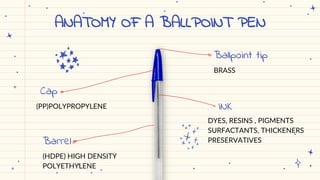 ANATOMY OF A BALLPOINT PEN
Ballpoint tip
BRASS
Cap
(PP)POLYPROPYLENE
INK
DYES, RESINS , PIGMENTS
SURFACTANTS, THICKENERS
PRESERVATIVES
Barrel
(HDPE) HIGH DENSITY
POLYETHYLENE